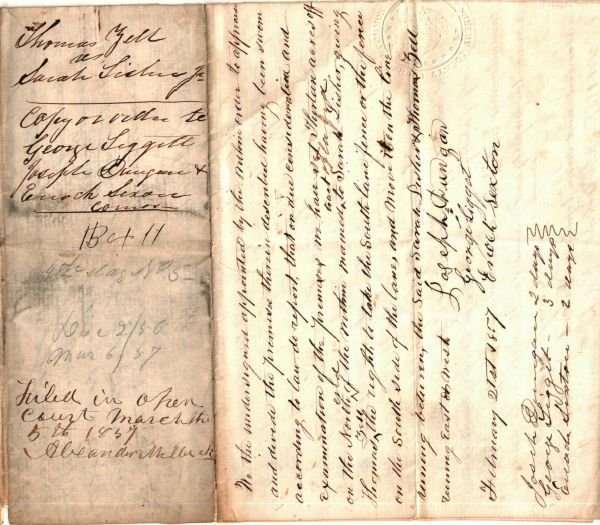 Thomas Zell
vs
Sarah Lisher Jr
Copy order to
George Liggitt
Joseph Dungan &
Enoch Sexton
comrs
Box 11
Dec 2/56
Mar 6/57
Filed in open
Court March the
5th 1857
We the undersigned appointed by the within order to appraise
and divide the premises therein described having been sworn
according to law do report, that on due consideration and
examination of the premises we have set Sixteen acres off
on the North of the within named to Sarah Lisher, giving
Thomas Zell the right to take the South lane fence or the fence
on the South side of the lane and move it on the line
running between the said Sarah Lisher & Thomas Zell
running East & West
Joseph Dungan
George Liggit
Enoch Sexton
February 21st 1857
Joseph Dungan 2 days
George Liggitt - 3 days
Enoch Sexton - 2 days